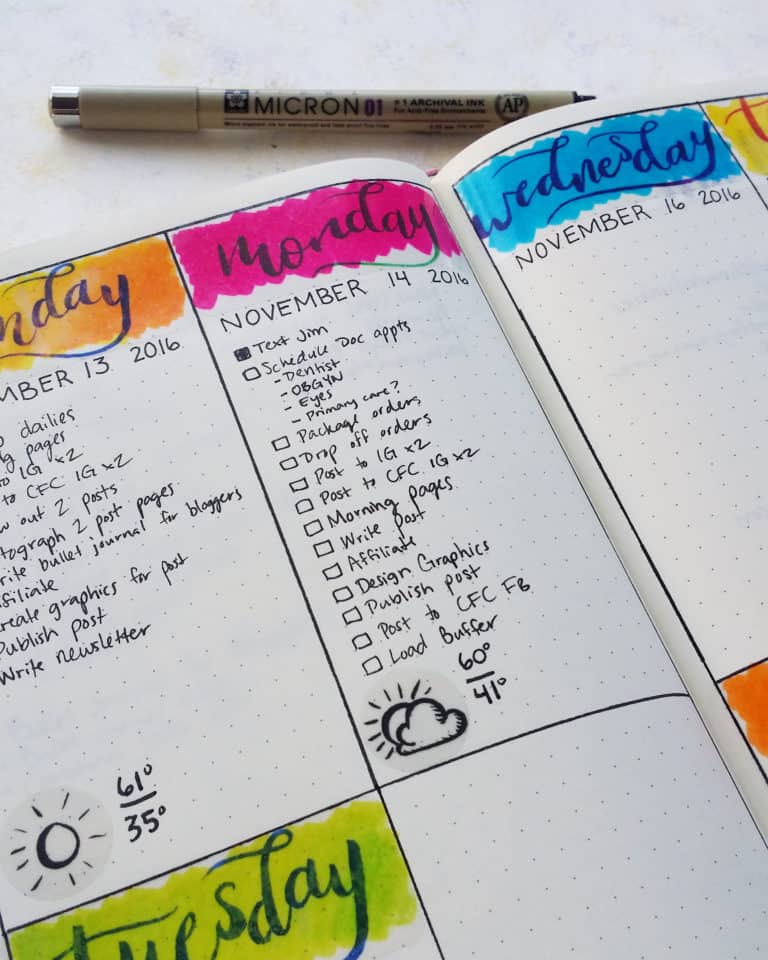 MICRON 01
#1 ARCHIVAL INK
For Acid-Free Environments
AP
nday
MBER 13 2016
dailies
pages
IG x2
to CFC IG x2
out 2 posts
tograph 2 post pages
rite bullet journal for bloggers
ffiliate
reate graphics for post
Publish post
Write newsletter
61°
35°
monday
NOVEMBER 14 2016
Text Jim
Schedule Doc appts
- Dentist
- OBGYN
- Eyes
- Primary care?
Package orders
Drop off orders
Post to IG x2
Post to CFC IG x2
Morning pages
Write Post
Affiliate
Design Graphics
Publish post
Post to CFC FB
Load Buffer
60°
41°
tuesday
wednesday
NOVEMBER 16 2016